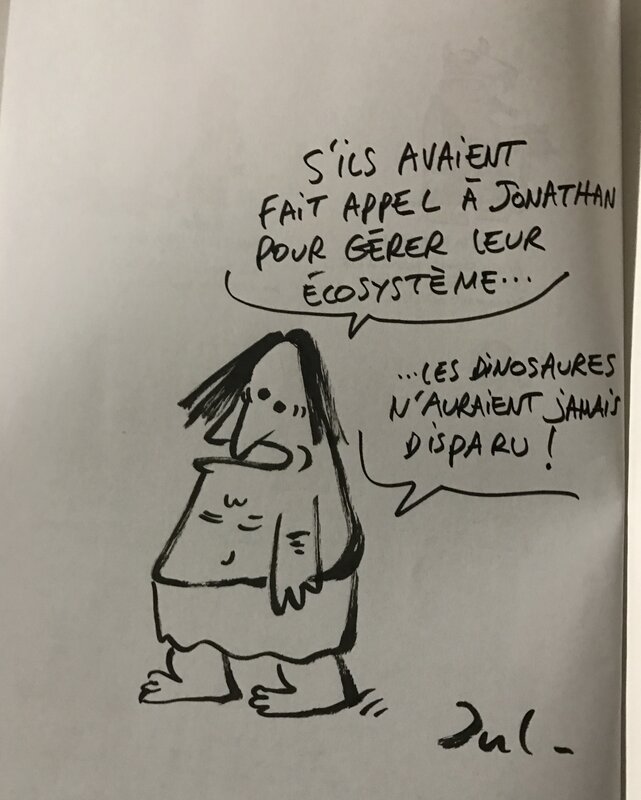 S'ILS AVAIENT
FAIT APPEL À JONATHAN
POUR GÉRER LEUR
ÉCOSYSTÈME...
...LES DINOSAURES
N'AURAIENT JAMAIS
DISPARU !
Jul-